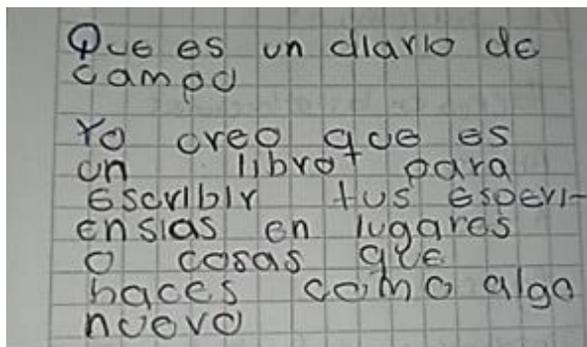 Que es un diario de
campo
Yo creo que es
un libro para
escribir tus esperi-
ensias en lugares
o cosas que
haces como algo
nuevo